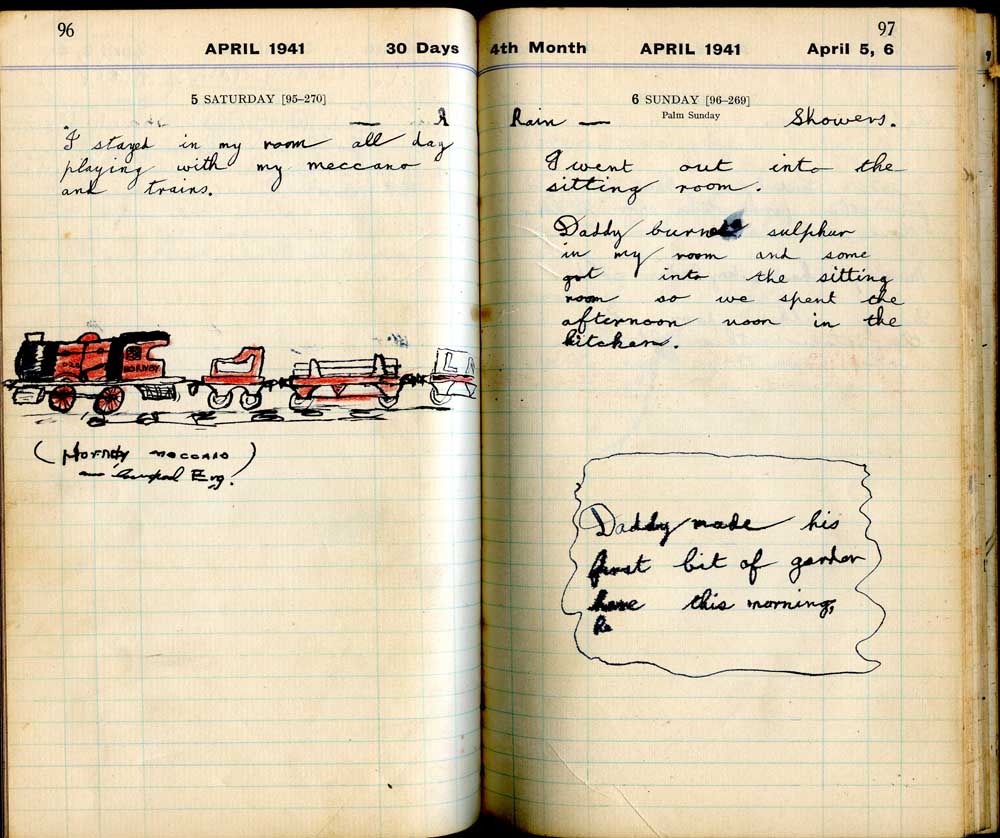 96
APRIL 1941 30 Days
5 SATURDAY [95–270]
— R
I stayed in my room all day
playing with my meccano
and trains.
HORNBY
(Hornby meccano)
Eng.
97
4th Month APRIL 1941 April 5, 6
6 SUNDAY [96–269]
Palm Sunday
Rain — Showers.
I went out into the
sitting room.
Daddy sulphur
in my room and some
got into the sitting
room so we spent the
afternoon noon in the
kitchen.
Daddy made his
first bit of garden
here this morning,
He